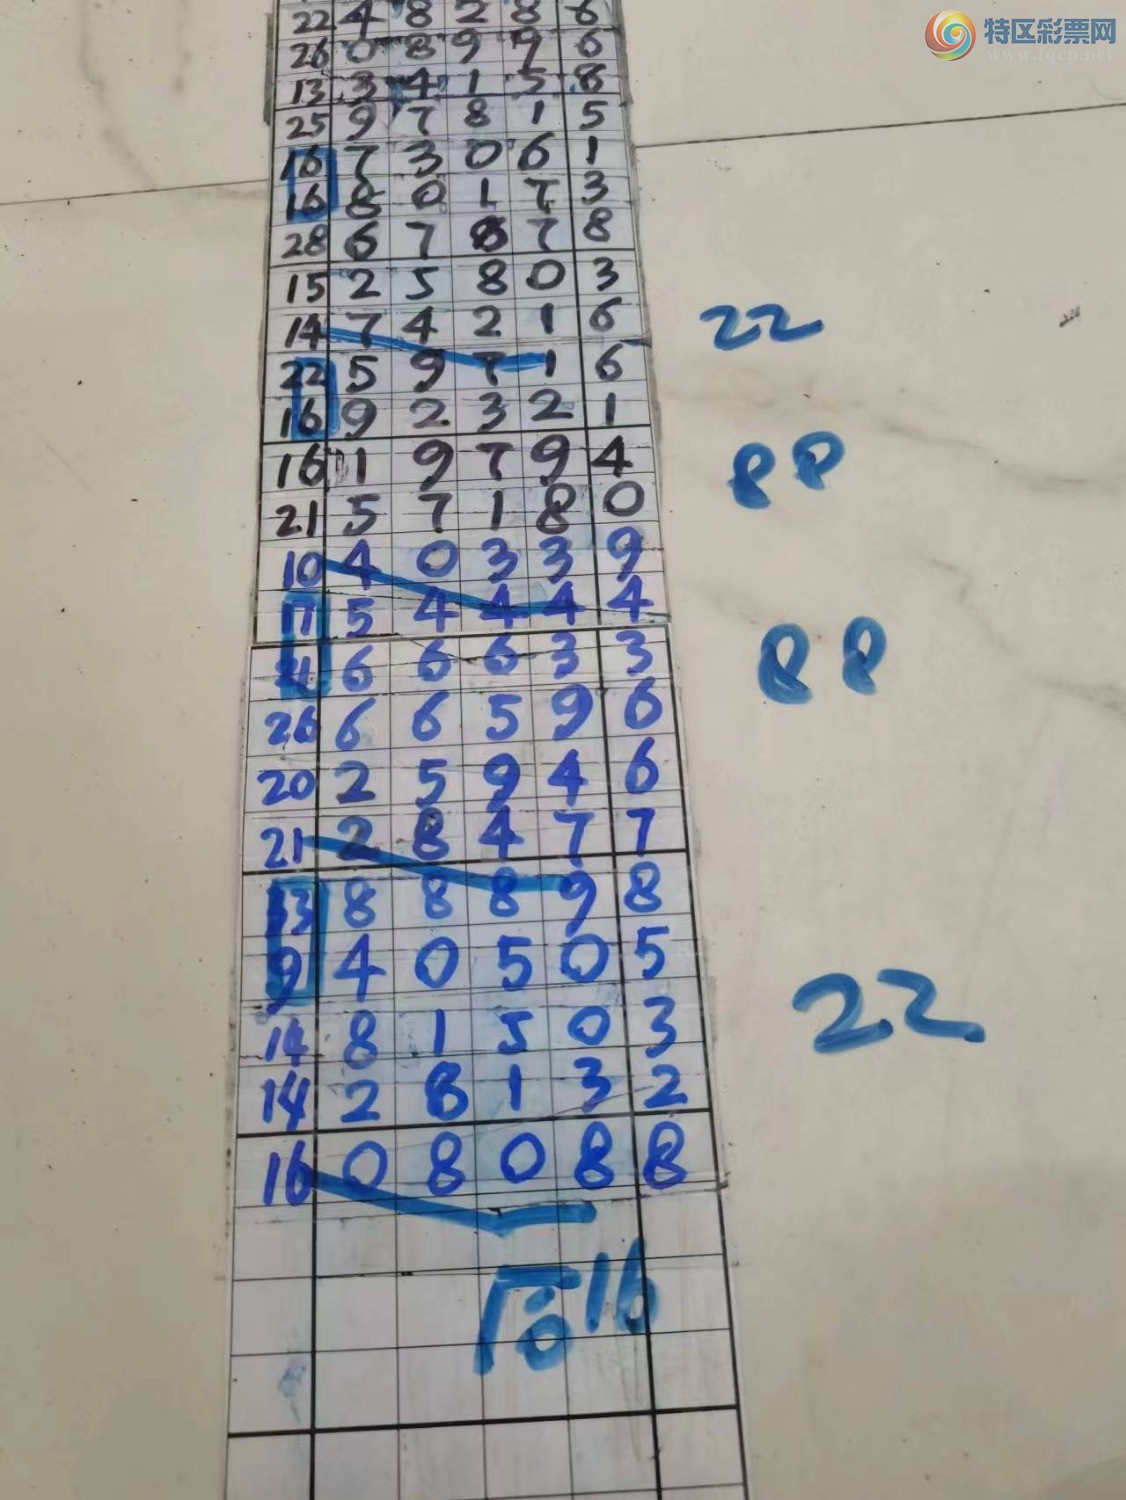 特区彩票网
www.tqcp.net
22 4 8 2 8 6
26 0 8 9 9 6
13 3 4 1 5 8
25 9 7 8 1 5
16 7 3 0 6 1
16 8 0 1 7 3
28 6 7 8 7 8
15 2 5 8 0 3
14 7 4 2 1 6
22
22 5 9 7 1 6
16 9 2 3 2 1
16 1 9 7 9 4
88
21 5 7 1 8 0
10 4 0 3 3 9
17 5 4 4 4 4
21 6 6 6 3 3
88
26 6 6 5 9 6
20 2 5 9 4 6
21 2 8 4 7 7
13 8 8 8 9 8
9 4 0 5 0 5
22
14 8 1 5 0 3
14 2 8 1 3 2
16 0 8 0 8 8
16